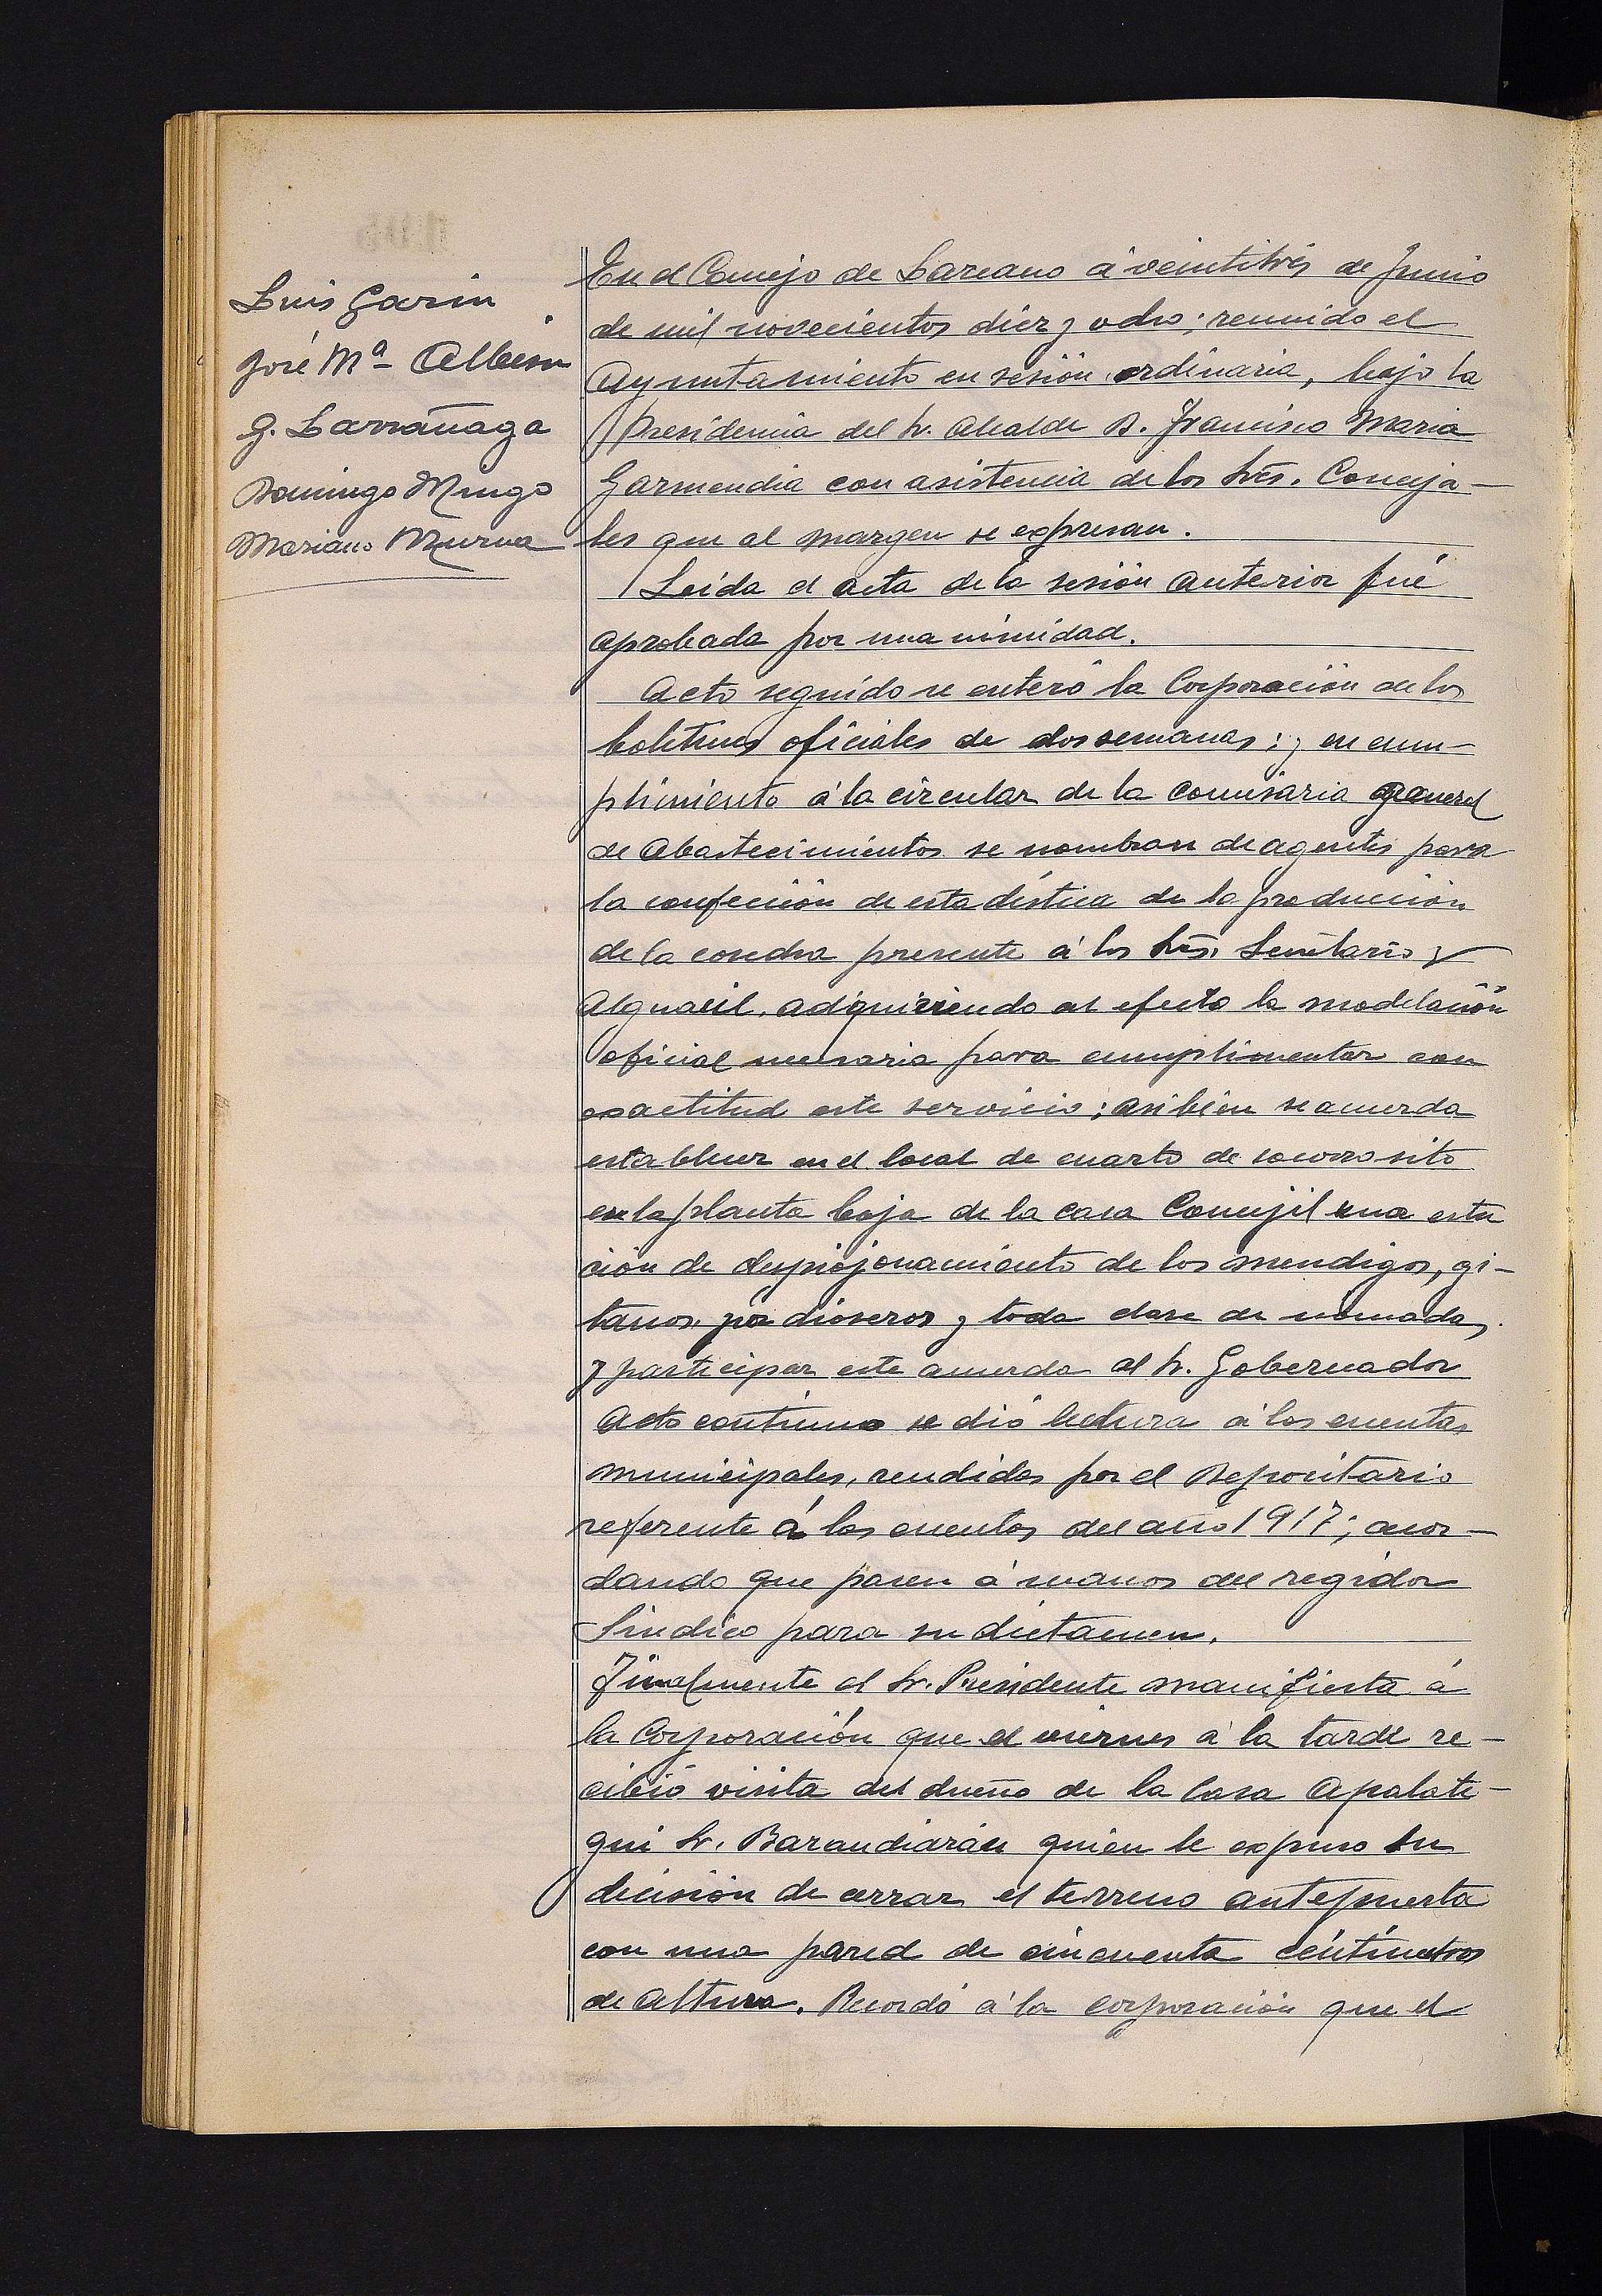 Luis Garin
José Mª Albisu
G. Larrañaga
Domingo Mingo
Mariano Murua
En el Concejo de Lazcano á veintitrés de Junio
de mil novecientos diez y ocho; reunido el
Ayuntamiento en sesión ordinaria, bajo la
Presidencia del Sr. Alcalde D. Francisco Maria
Garmendia con asistencia de los Srés. Conceja-
les que al margen se expresan.
Leida el acta de la sesión anterior fué
aprobada por unanimidad.
Acto seguido se enteró la Corporación de los
boletines oficiales de dos semanas; y en cum-
plimiento á la circular de la Comisaria general
de Abastecimientos se nombran de agentes para
la confección de estadística de la producción
de la cosecha presente á los Srés. Secretario y
Alguacil, adquiriendo al efecto la modelación
oficial necesaria para cumplimentar con
exactitud este servicio; asi bien se acuerda
establecer en el local de cuarto de socorro sito
en la planta baja de la casa Concejil una esta
ción de despiojonamiento de los mendigos, gi-
tanos, pordioseros y toda clase de nómadas,
y participar este acuerdo al Sr. Gobernador
Acto continuo se dió lectura á las cuentas
municipales, rendidas por el Depositario
referente á las cuentas del año 1917; acor-
dando que pasen á manos del regidor
Síndico para su dictamen.
Finalmente el Sr. Presidente manifiesta á
la Corporación que el viernes á la tarde re-
cibió visita del dueño de la Casa Apalate-
gui Sr. Barandiarán quien le expuso su
decisión de cerrar el terreno antepuerta
con una pared de cincuenta céntimetros
de altura. Recordó á la corporación que el